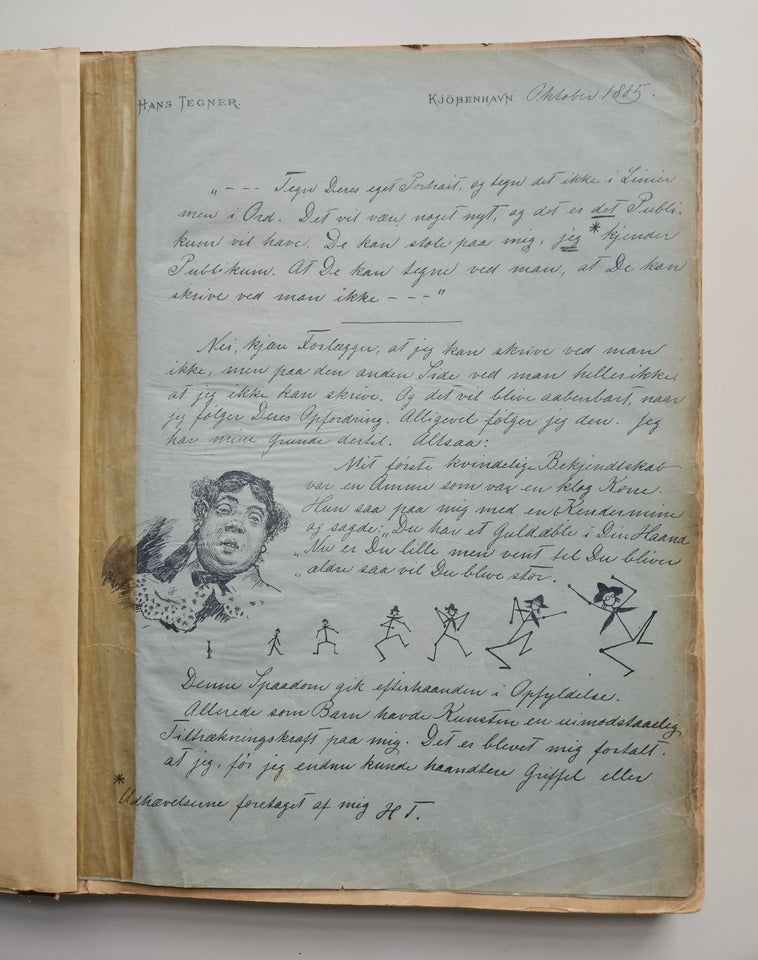 HANS TEGNER.
KJÖBENHAVN Oktober 1885.
„--- Tegn Deres eget Portrait, og tegn det ikke i Linier
men i Ord. Det vil være noget nyt, og det er det Publi-
kum vil have. De kan stole paa mig, jeg * kjender
Publikum. At De kan tegne ved man, at De kan
skrive ved man ikke ---"
Nei, kjære Forlægger, at jeg kan skrive ved man
ikke, men paa den anden Side ved man heller ikke,
at jeg ikke kan skrive. Og det vil blive aabenbart, naar
jeg følger Deres Opfordring. Alligevel følger jeg den. Jeg
har mine Grunde dertil. Altsaa:
Mit første kvindelige Bekjendtskab
var en Amme som var en klog Kone.
Hun saa paa mig med en Kendermine
og sagde: „Du har et Guldæble i Din Haand
„Nu er Du lille men vent til Du bliver
„ældre saa vil Du blive stor.
Denne Spaadom gik efterhaanden i Opfyldelse.
Allerede som Barn havde Kunsten en uimodstaaelig
Tiltrækningskraft paa mig. Det er blevet mig fortalt,
at jeg, før jeg endnu kunde haandtere Griffel eller
* Udhævelserne foretaget af mig H T.